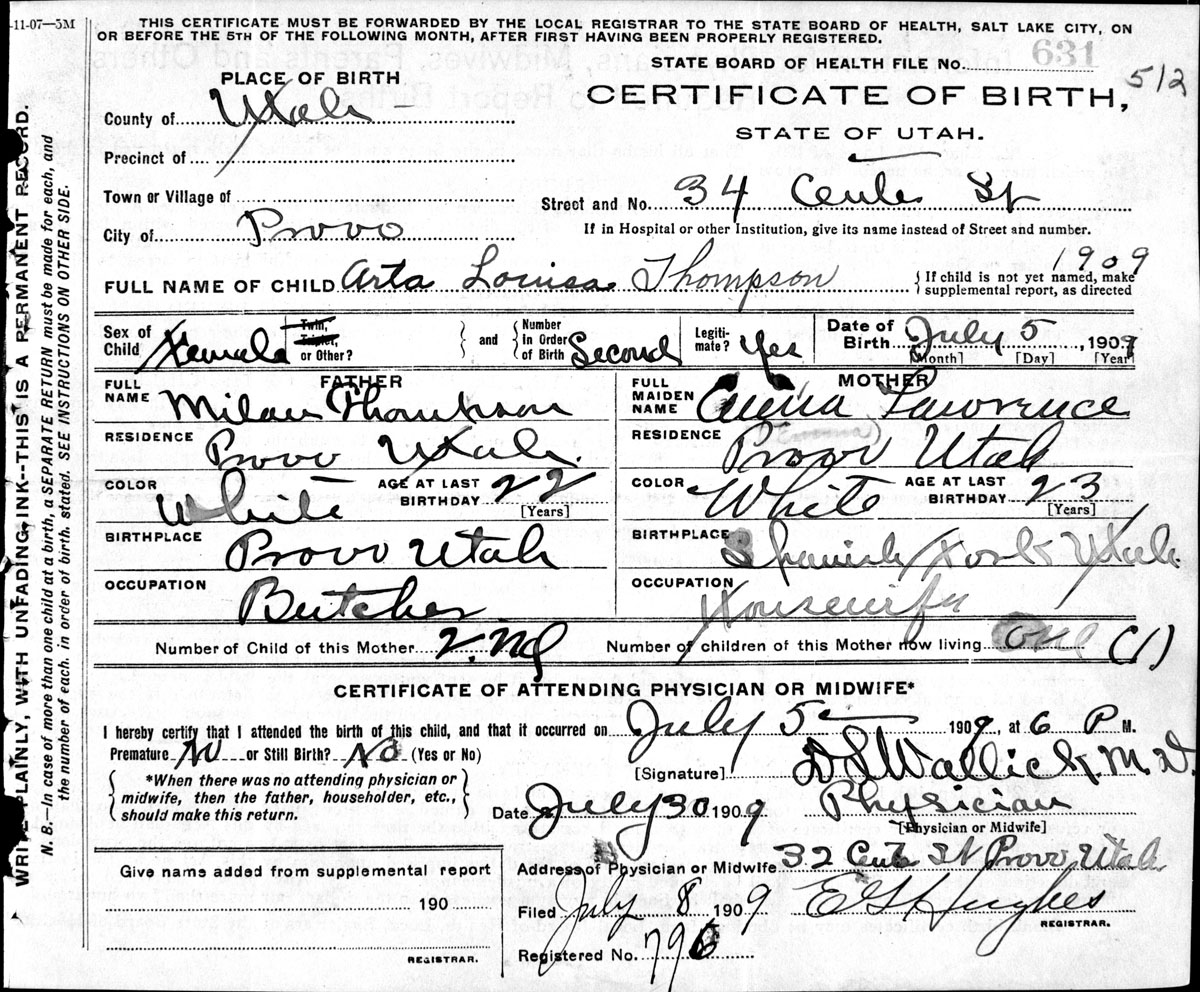 -11-07—5M
THIS CERTIFICATE MUST BE FORWARDED BY THE LOCAL REGISTRAR TO THE STATE BOARD OF HEALTH, SALT LAKE CITY, ON
OR BEFORE THE 5TH OF THE FOLLOWING MONTH, AFTER FIRST HAVING BEEN PROPERLY REGISTERED.
STATE BOARD OF HEALTH FILE No. 512
631
PLACE OF BIRTH
CERTIFICATE OF BIRTH,
STATE OF UTAH.
County of Utah
Precinct of
Town or Village of
Street and No. 34 Center St
City of Provo
If in Hospital or other Institution, give its name instead of Street and number.
1909
FULL NAME OF CHILD Arta Louisa Thompson
{If child is not yet named, make
supplemental report, as directed
Sex of Child Female
Twin, Triplet, or Other?
and
Number In Order of Birth Second
Legiti-mate? Yes
Date of Birth July 5 1909
[Month] [Day] [Year]
FATHER
FULL NAME Milan Thompson
RESIDENCE Provo Utah.
COLOR White AGE AT LAST BIRTHDAY 22 [Years]
BIRTHPLACE Provo Utah
OCCUPATION Butcher
MOTHER
FULL MAIDEN NAME Lawrence
(Emma)
RESIDENCE Provo Utah
COLOR White AGE AT LAST BIRTHDAY 23 [Years]
BIRTHPLACE Spanish Fork Utah.
OCCUPATION Housewife
Number of Child of this Mother 2.nd Number of children of this Mother now living one (1)
CERTIFICATE OF ATTENDING PHYSICIAN OR MIDWIFE*
I hereby certify that I attended the birth of this child, and that it occurred on July 5 1909, at 6 P M.
Premature No or Still Birth? No (Yes or No)
[Signature] Wallick, M.D.
{*When there was no attending physician or
midwife, then the father, householder, etc.,
should make this return.}
Date July 30 1909 Physician
[Physician or Midwife]
Address of Physician or Midwife 32 Cente St Provo Utah
Give name added from supplemental report
190
REGISTRAR.
Filed July 8 1909 Hughes
REGISTRAR.
Registered No. 796
WRITE PLAINLY, WITH UNFADING INK--THIS IS A PERMANENT RECORD.
N. B.—In case of more than one child at a birth, a SEPARATE RETURN must be made for each, and
the number of each. in order of birth. stated. SEE INSTRUCTIONS ON OTHER SIDE.